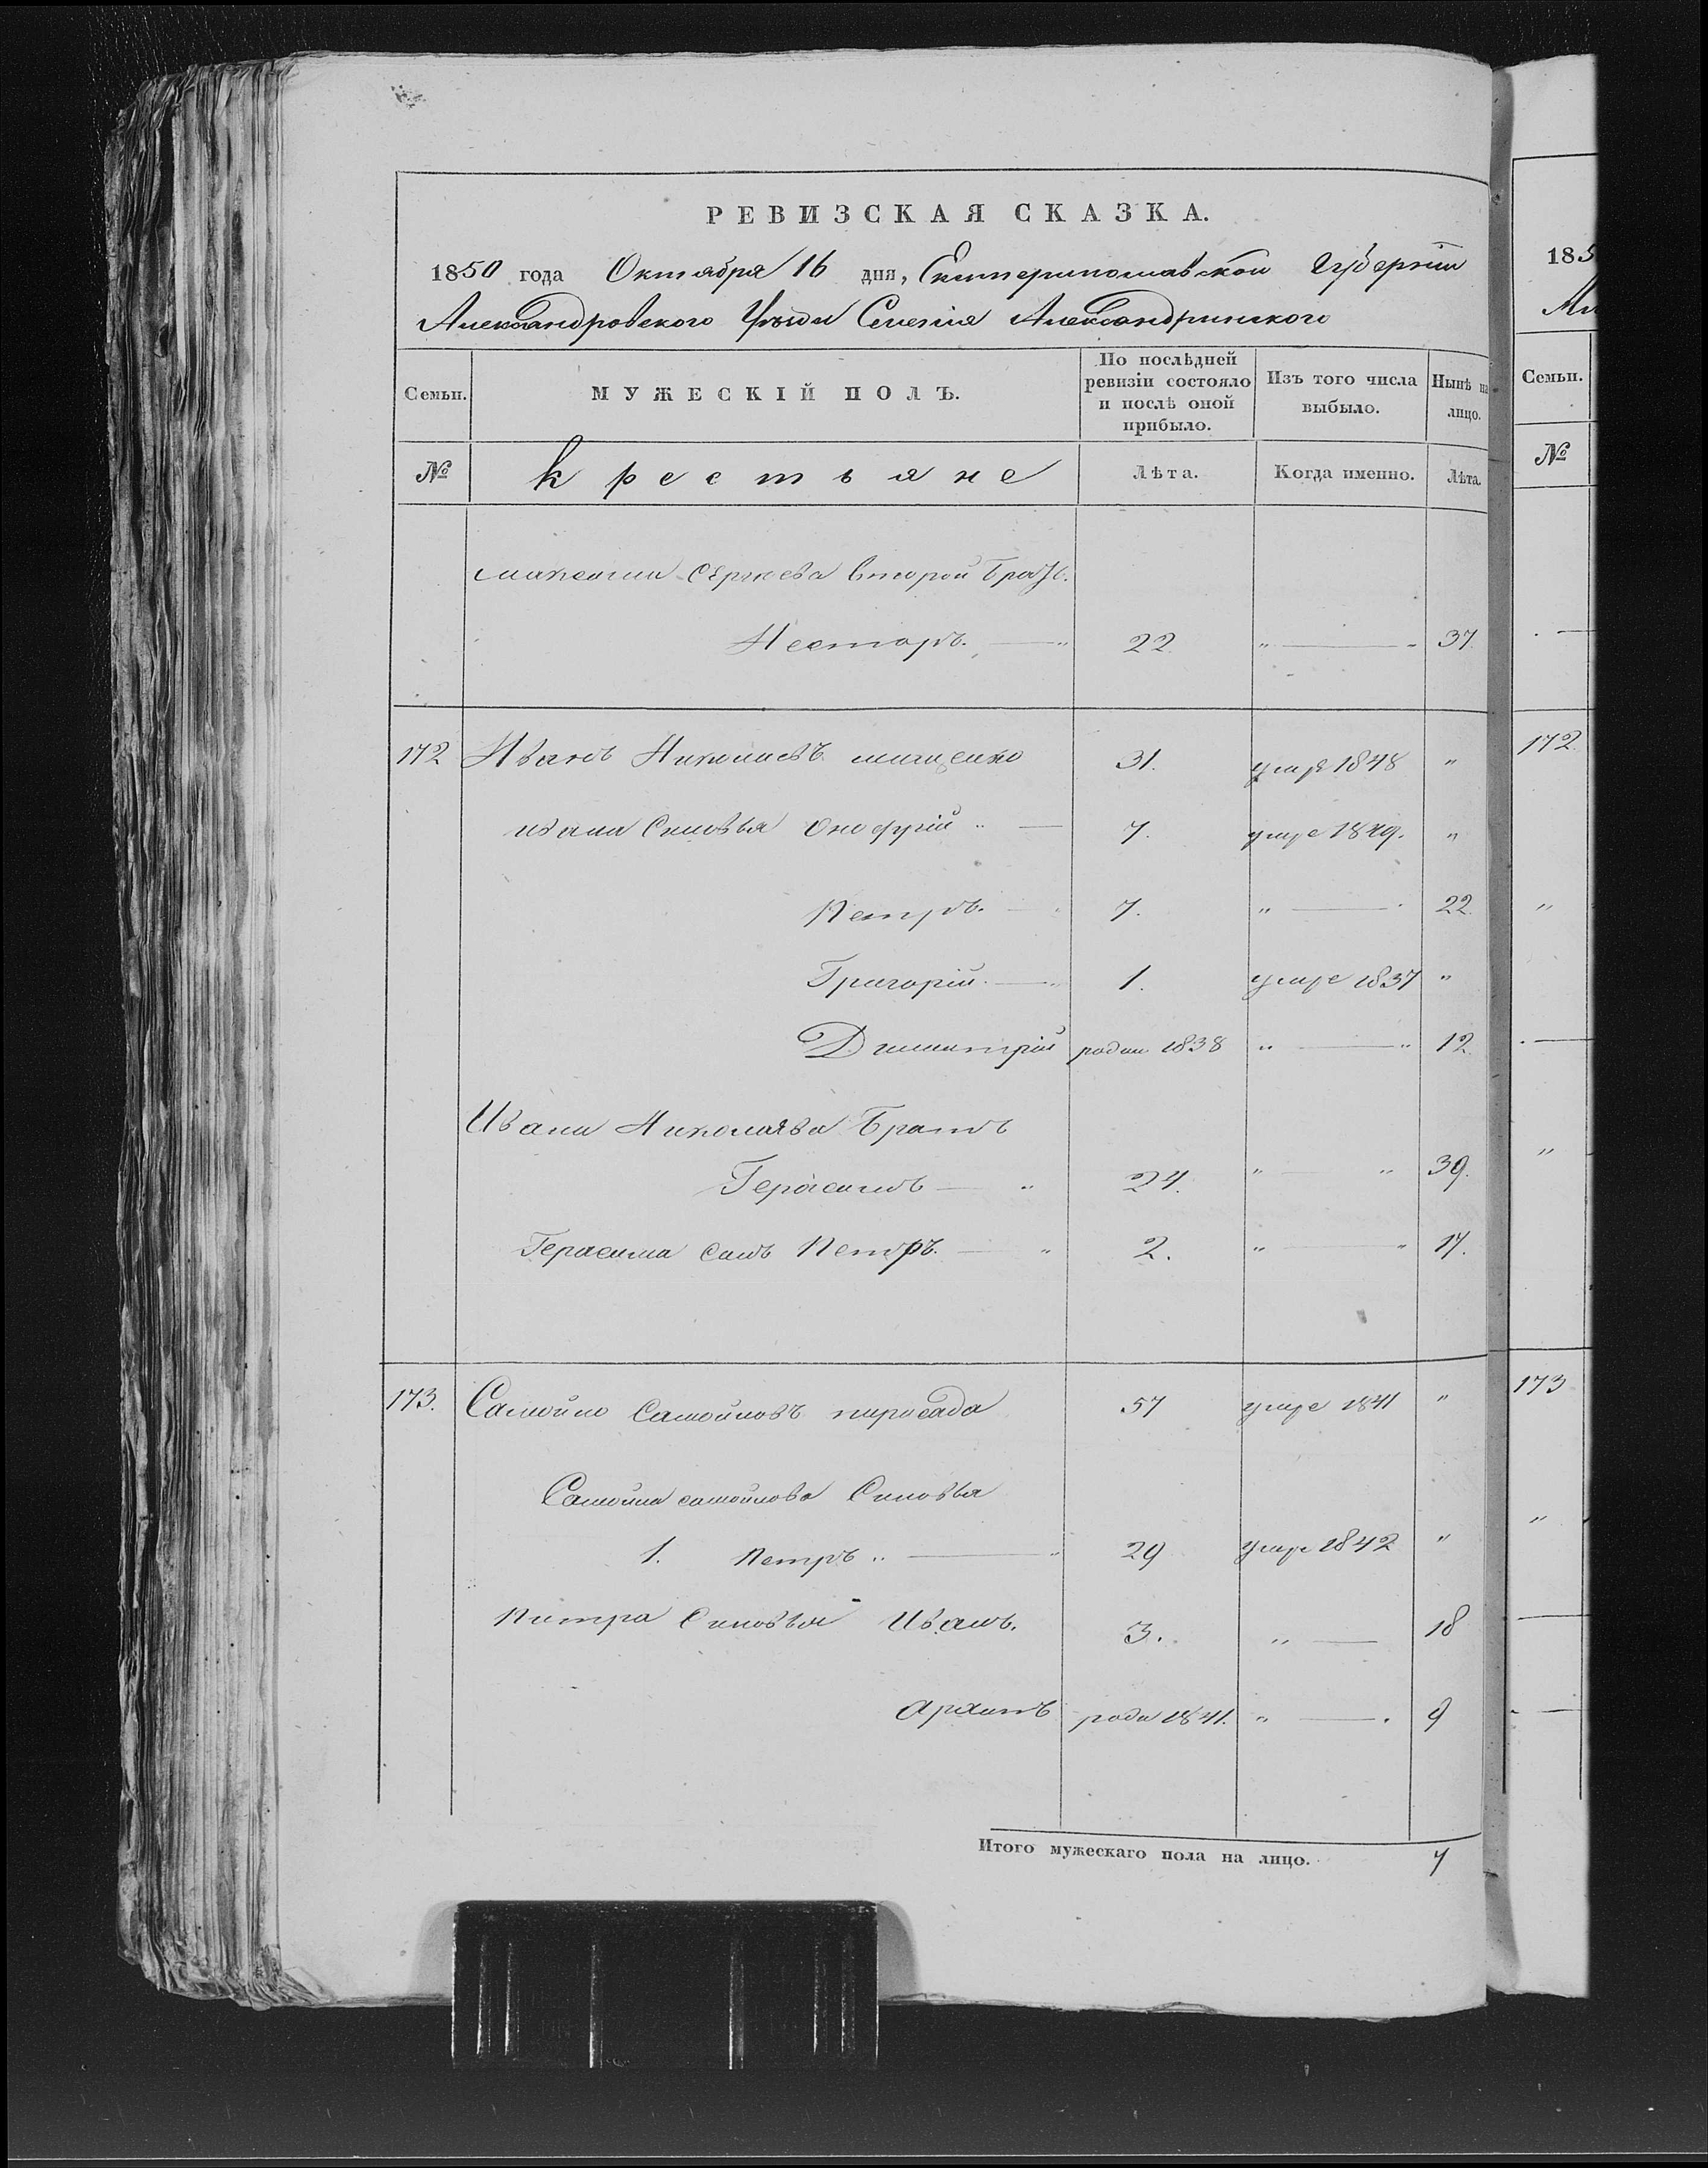 РЕВИЗСКАЯ СКАЗКА.
1850 года Октября 16 дня, Екатеринославской Губерніи
Александровского Уезда Селенія Александринского
Семьи.
МУЖЕСКІЙ ПОЛЪ.
По послѣдней ревизіи состояло и послѣ оной прибыло.
Изъ того числа выбыло.
Нынѣ на лицо.
№ Крестьяне Лѣта. Когда именно. Лѣта.
Максима Сергеева второй братъ.
Несторъ. — " 22 " — " 37.
172 Иванъ Николаевъ мищенко 31. умре 1848 "
ивана Сыновья Онофрій " — 7. умре 1849. "
Петръ. — 7. " — " 22.
Григорій. — " 1. умре 1837 "
Димитрій родил 1838 " — " 12.
Ивана Николаева Братъ
Герасимъ — " 24. " — " 39.
Герасима сынъ Петръ. — " 2. " — " 17.
173. Самойло Самойловъ 57 умре 1841 "
Самойла самойлова Сыновья
1. Петръ " — " 29 умре 1842 "
Питра Сыновья Иванъ. 3. " — 18
архипъ роди 1841. " — " 9
Итого мужескаго пола на лицо. 7
185
Семьи.
№
172.
"
"
173
"